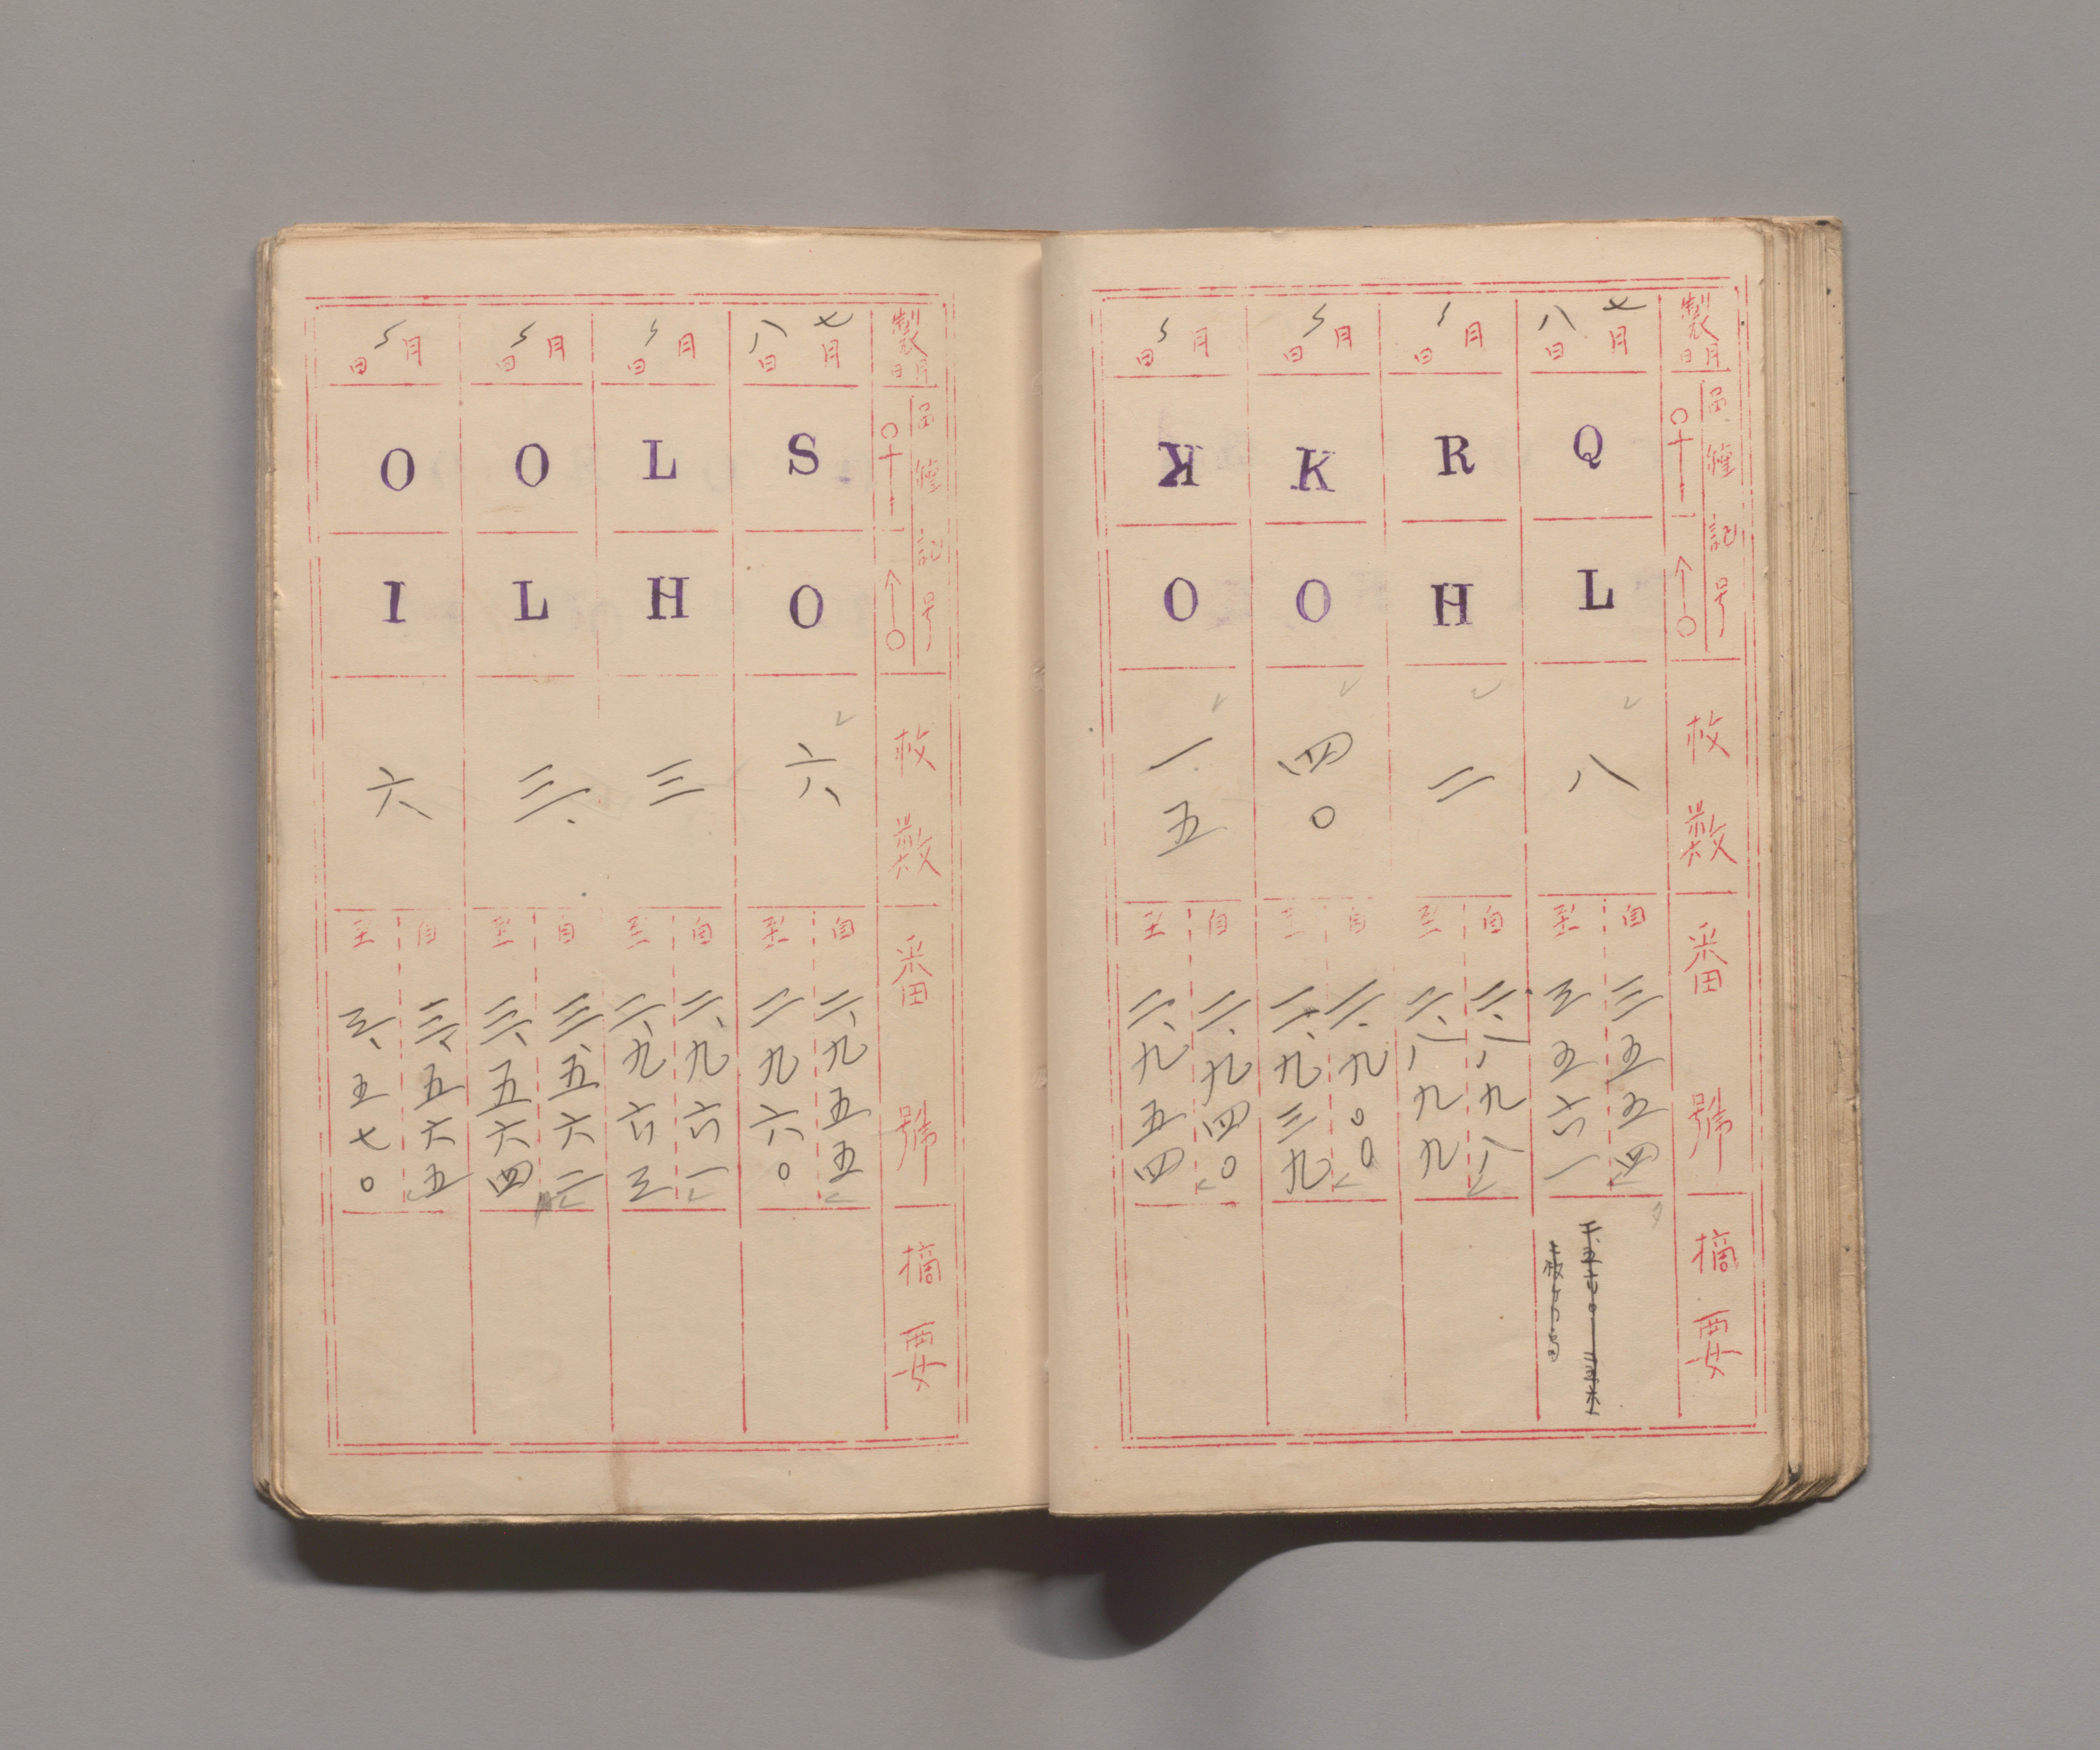 製月日
記号
枚数
番號
摘要
七月八日
Q
L
八
自 三五五四
至 三五六一
月日
R
H
二
自 二、八九八
至 二、八九九
月日
K
O
四〇
自 二、九〇〇
至 二、九三九
月日
K
O
一五
自 二、九四〇
至 二、九五四
製月日
記号
枚数
番號
摘要
七月八日
S
O
六
自 二、九五五
至 二九六〇
月日
L
H
三
自 二、九六一
至 二、九六三
月日
O
L
三
自 三、五六二
至 三、五六四
月日
O
I
六
自 三、五六五
至 三、五七〇